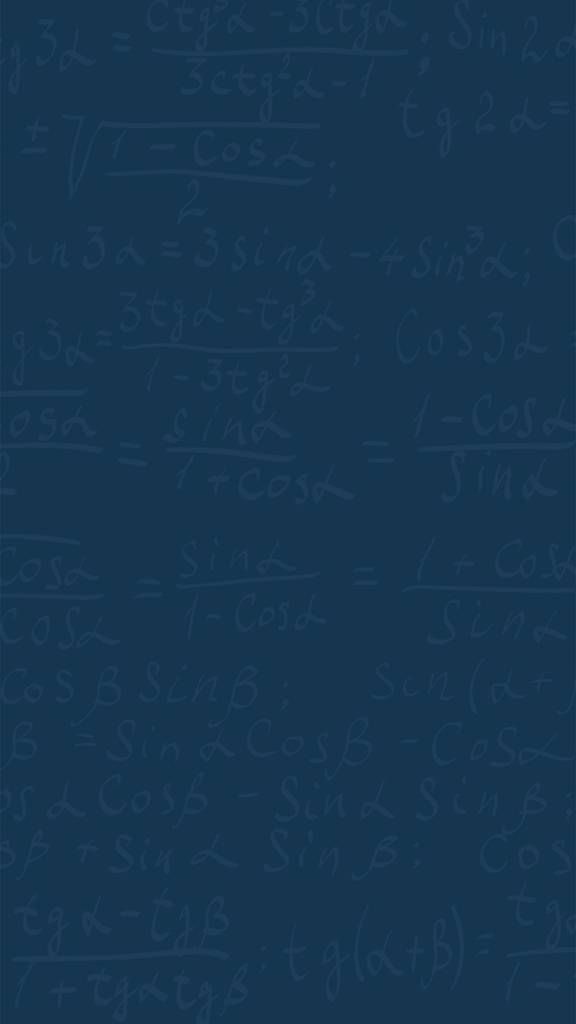 g3α = ctg³α - 3ctgα / 3ctg²α - 1 ; Sin 2α
± √ 1 - Cosα / 2 ; tg 2α =
Sin3α = 3 sinα - 4 Sin³α;
g3α = 3tgα - tg³α / 1 - 3tg²α ; Cos3α =
osα / 2 = sinα / 1 + cosα = 1 - Cosα / Sinα
Cosα / Cosα = Sinα / 1 - Cosα = 1 + Cosα / Sinα
Cos β Sin β ; Sin (α +
β = Sin α Cos β - Cosα
os α Cos β - Sin α Sin β ;
sβ + Sin α Sin β ; Cos
tgα - tgβ / 1 + tgα tgβ ; tg(α+β) = tgα / 1 -